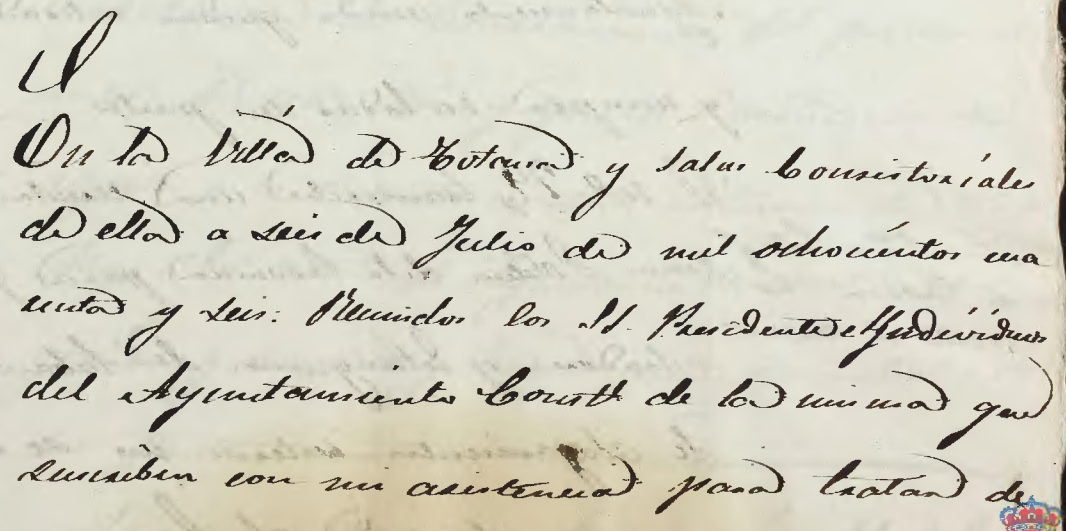 En la Villa de Totana y Salas Consistoriales
de ella a seis de Julio de mil ochocientos cua
renta y seis: Reunidos los SS. Presidente e Yndividuos
del Ayuntamiento Constl. de la misma que
suscriben con mi asistencia para tratar de